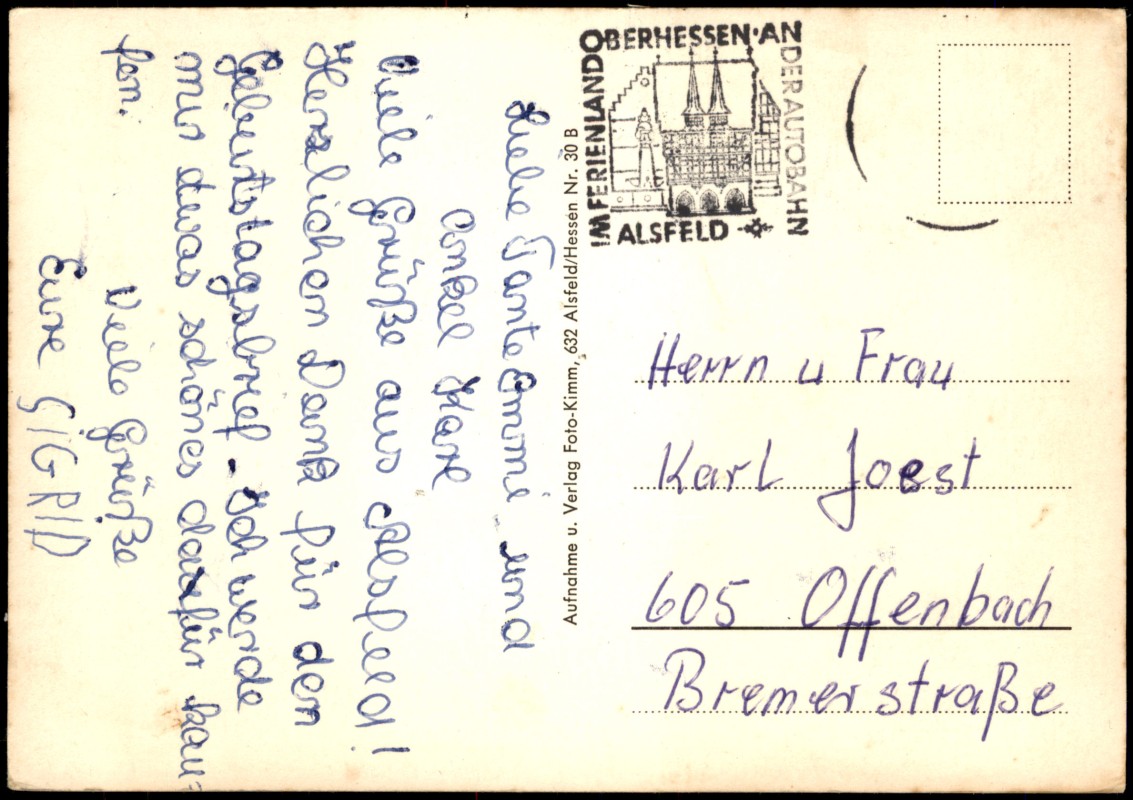 Liebe Tante Emmi und
Onkel Karl
Viele Grüße aus Alsfeld!
Herzlichen Dank für den
Geburtstagsbrief. Ich werde
mir etwas schönes dafür kau=
fen.
Viele Grüße
Eure SIGRID
Aufnahme u. Verlag Foto-Kimm, 632 Alsfeld/Hessen Nr. 30 B
IM FERIENLAND OBERHESSEN·AN DER AUTOBAHN
ALSFELD
Herrn u Frau
Karl Joest
605 Offenbach
Bremerstraße